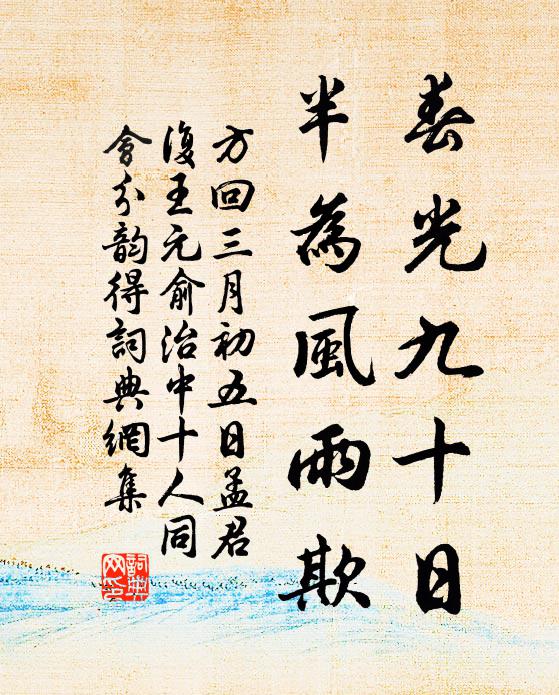 春光九十日
半為風雨欺
方回三月初五日孟君
復王元俞治中十人同
會分韵得詞典網集
詞典網印